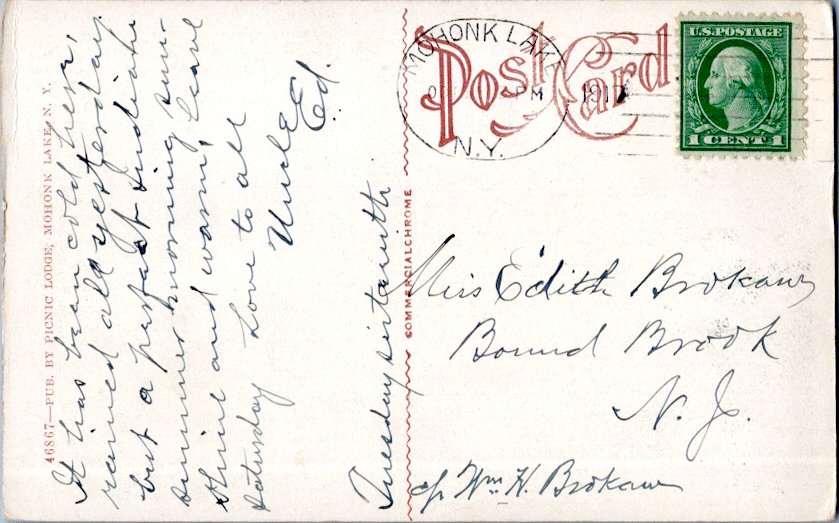 46867—PUB. BY PICNIC LODGE, MOHONK LAKE, N. Y.
It has been cold here,
rained all yesterday
but a perfect Indian
summer morning sun-
shine and warm, leave
saturday Love to all
Uncle Ed.
Tuesday sixteenth
COMMERCIALCHROME
Post Card
MOHONK LAKE
PM
1917
N.Y.
U.S. POSTAGE
1 CENT 1
Miss Edith Brokaw
Bound Brook
N. J.
c/o Wm H. Brokaw